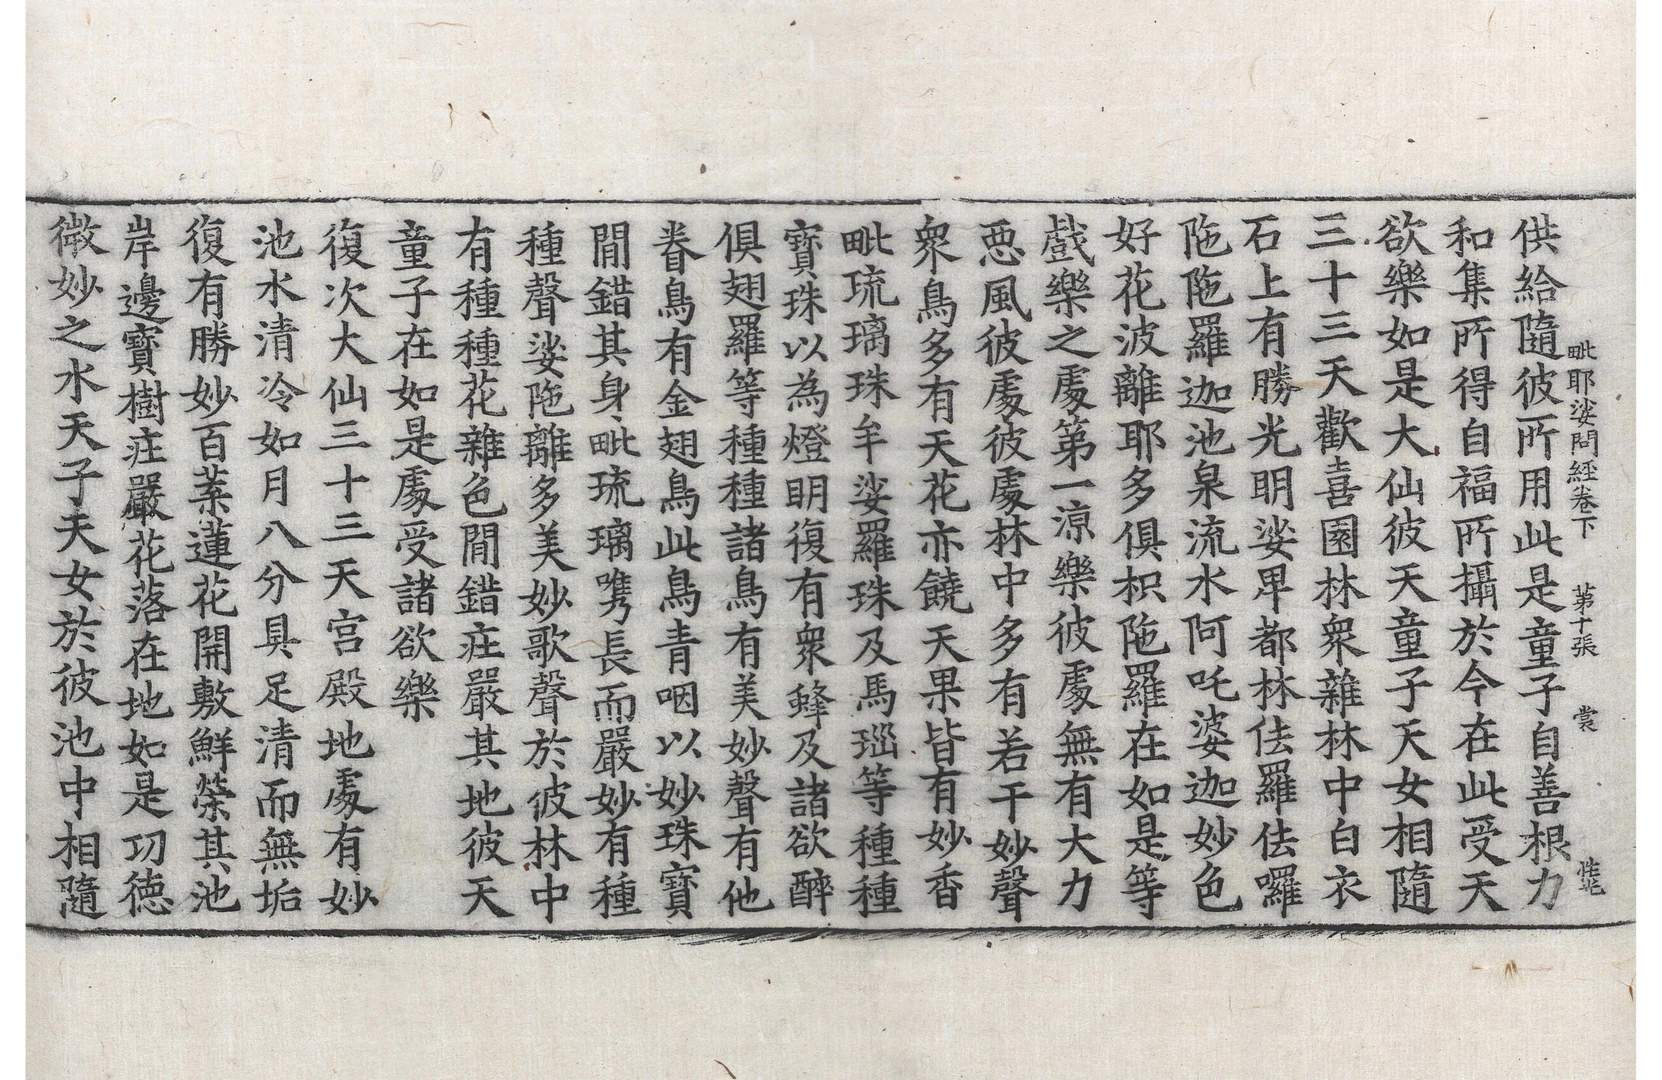 毗耶娑問經卷下 第十張 裳
供給隨彼所用此是童子自善根力
和集所得自福所攝於今在此受天
欲樂如是大仙彼天童子天女相隨
三十三天歡喜園林衆雜林中白衣
石上有勝光明娑畢都林佉羅佉囉
陁陁羅迦池泉流水阿吒婆迦妙色
好花波離耶多俱枳陁羅在如是等
戲樂之處第一凉樂彼處無有大力
惡風彼處彼處林中多有若干妙聲
衆鳥多有天花亦饒天果皆有妙香
毗琉璃珠牟娑羅珠及馬瑙等種種
寶珠以為燈明復有衆蜂及諸欲醉
俱翅羅等種種諸鳥有美妙聲有他
眷鳥有金翅鳥此鳥青咽以妙珠寶
間錯其身毗琉璃㗨長而嚴妙有種
種聲娑陁離多美妙歌聲於彼林中
有種種花雜色間錯莊嚴其地彼天
童子在如是處受諸欲樂
復次大仙三十三天宮殿地處有妙
池水清冷如月八分具足清而無垢
復有勝妙百葉蓮花開敷鮮榮其池
岸邊寶樹莊嚴花落在地如是功德
微妙之水天子天女於彼池中相隨